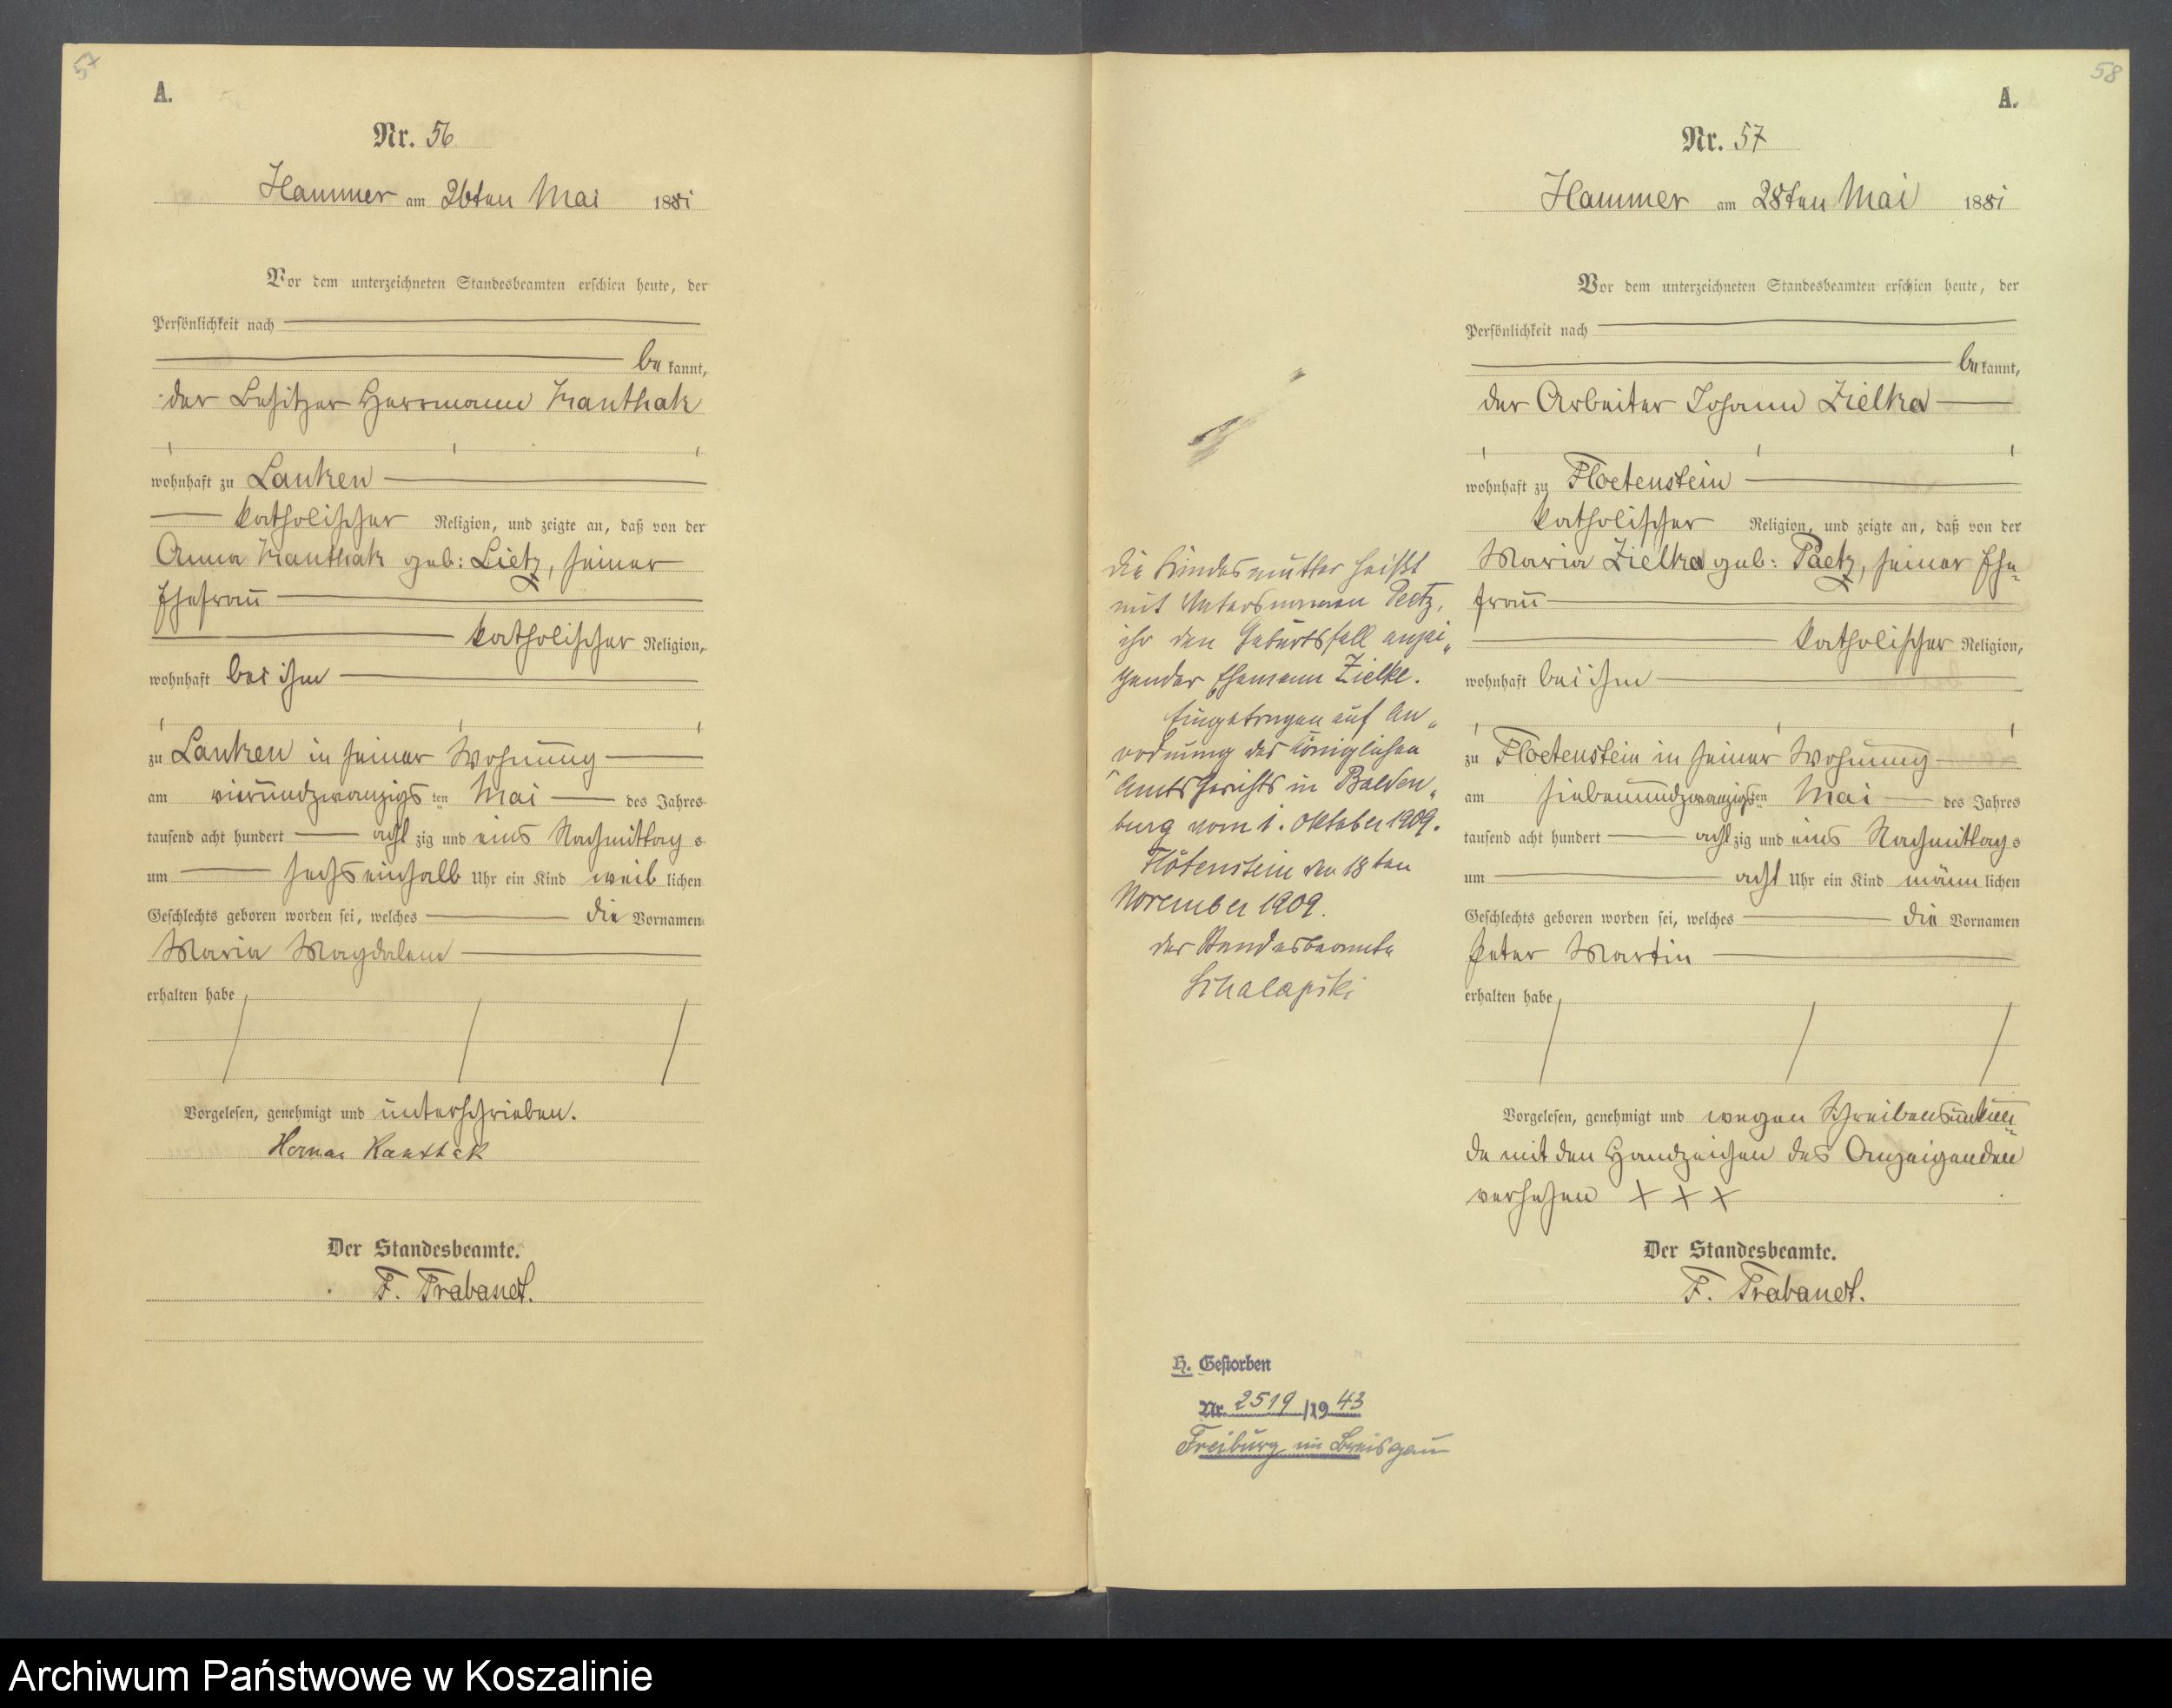 57
A.
Nr. 56
Hammer am 26ten Mai 1881
Vor dem unterzeichneten Standesbeamten erschien heute, der
Persönlichkeit nach
be kannt,
der Besitzer Herrmann Kanthak
wohnhaft zu Lanken
katholischer Religion, und zeigte an, daß von der
Anna Kanthak geb: Lietz, seiner
Ehefrau
katholischer Religion,
wohnhaft bei ihm
zu Lanken in seiner Wohnung
am vierundzwanzigs ten Mai des Jahres
tausend acht hundert acht zig und eins Nachmittag s
um sechs einhalb Uhr ein Kind weib lichen
Geschlechts geboren worden sei, welches die Vornamen
Maria Magdalena
erhalten habe
Vorgelesen, genehmigt und unterschrieben.
Herman Kanthak
Der Standesbeamte.
F. Trabandt.
58
A.
Nr. 57
Hammer am 28ten Mai 1881
Vor dem unterzeichneten Standesbeamten erschien heute, der
Persönlichkeit nach
be kannt,
der Arbeiter Johann Zielka
wohnhaft zu Floetenstein
katholischer Religion, und zeigte an, daß von der
Maria Zielka geb: Paetz, seiner Ehe-
frau
katholischer Religion,
wohnhaft bei ihm
zu Floetenstein in seiner Wohnung
am siebenundzwanzigsten Mai des Jahres
tausend acht hundert acht zig und eins Nachmittag s
um acht Uhr ein Kind männ lichen
Geschlechts geboren worden sei, welches die Vornamen
Peter Martin
erhalten habe
Vorgelesen, genehmigt und wegen Schreibensunkun-
de mit den Handzeichen des Anzeigenden
versehen + + +
Der Standesbeamte.
F. Trabandt.
Die Kindesmutter heißt
mit Vatersnamen Peetz,
ihr den Geburtsfall anzei-
gender Ehemann Zielke.
Eingetragen auf An-
ordnung des Königlichen
Amtsgerichts in Balden-
burg vom 1. Oktober 1909.
Flötenstein den 18ten
November 1909.
der Standesbeamte
H. Gestorben
Nr. 2519 /19 43
Freiburg im Breisgau
Archiwum Państwowe w Koszalinie